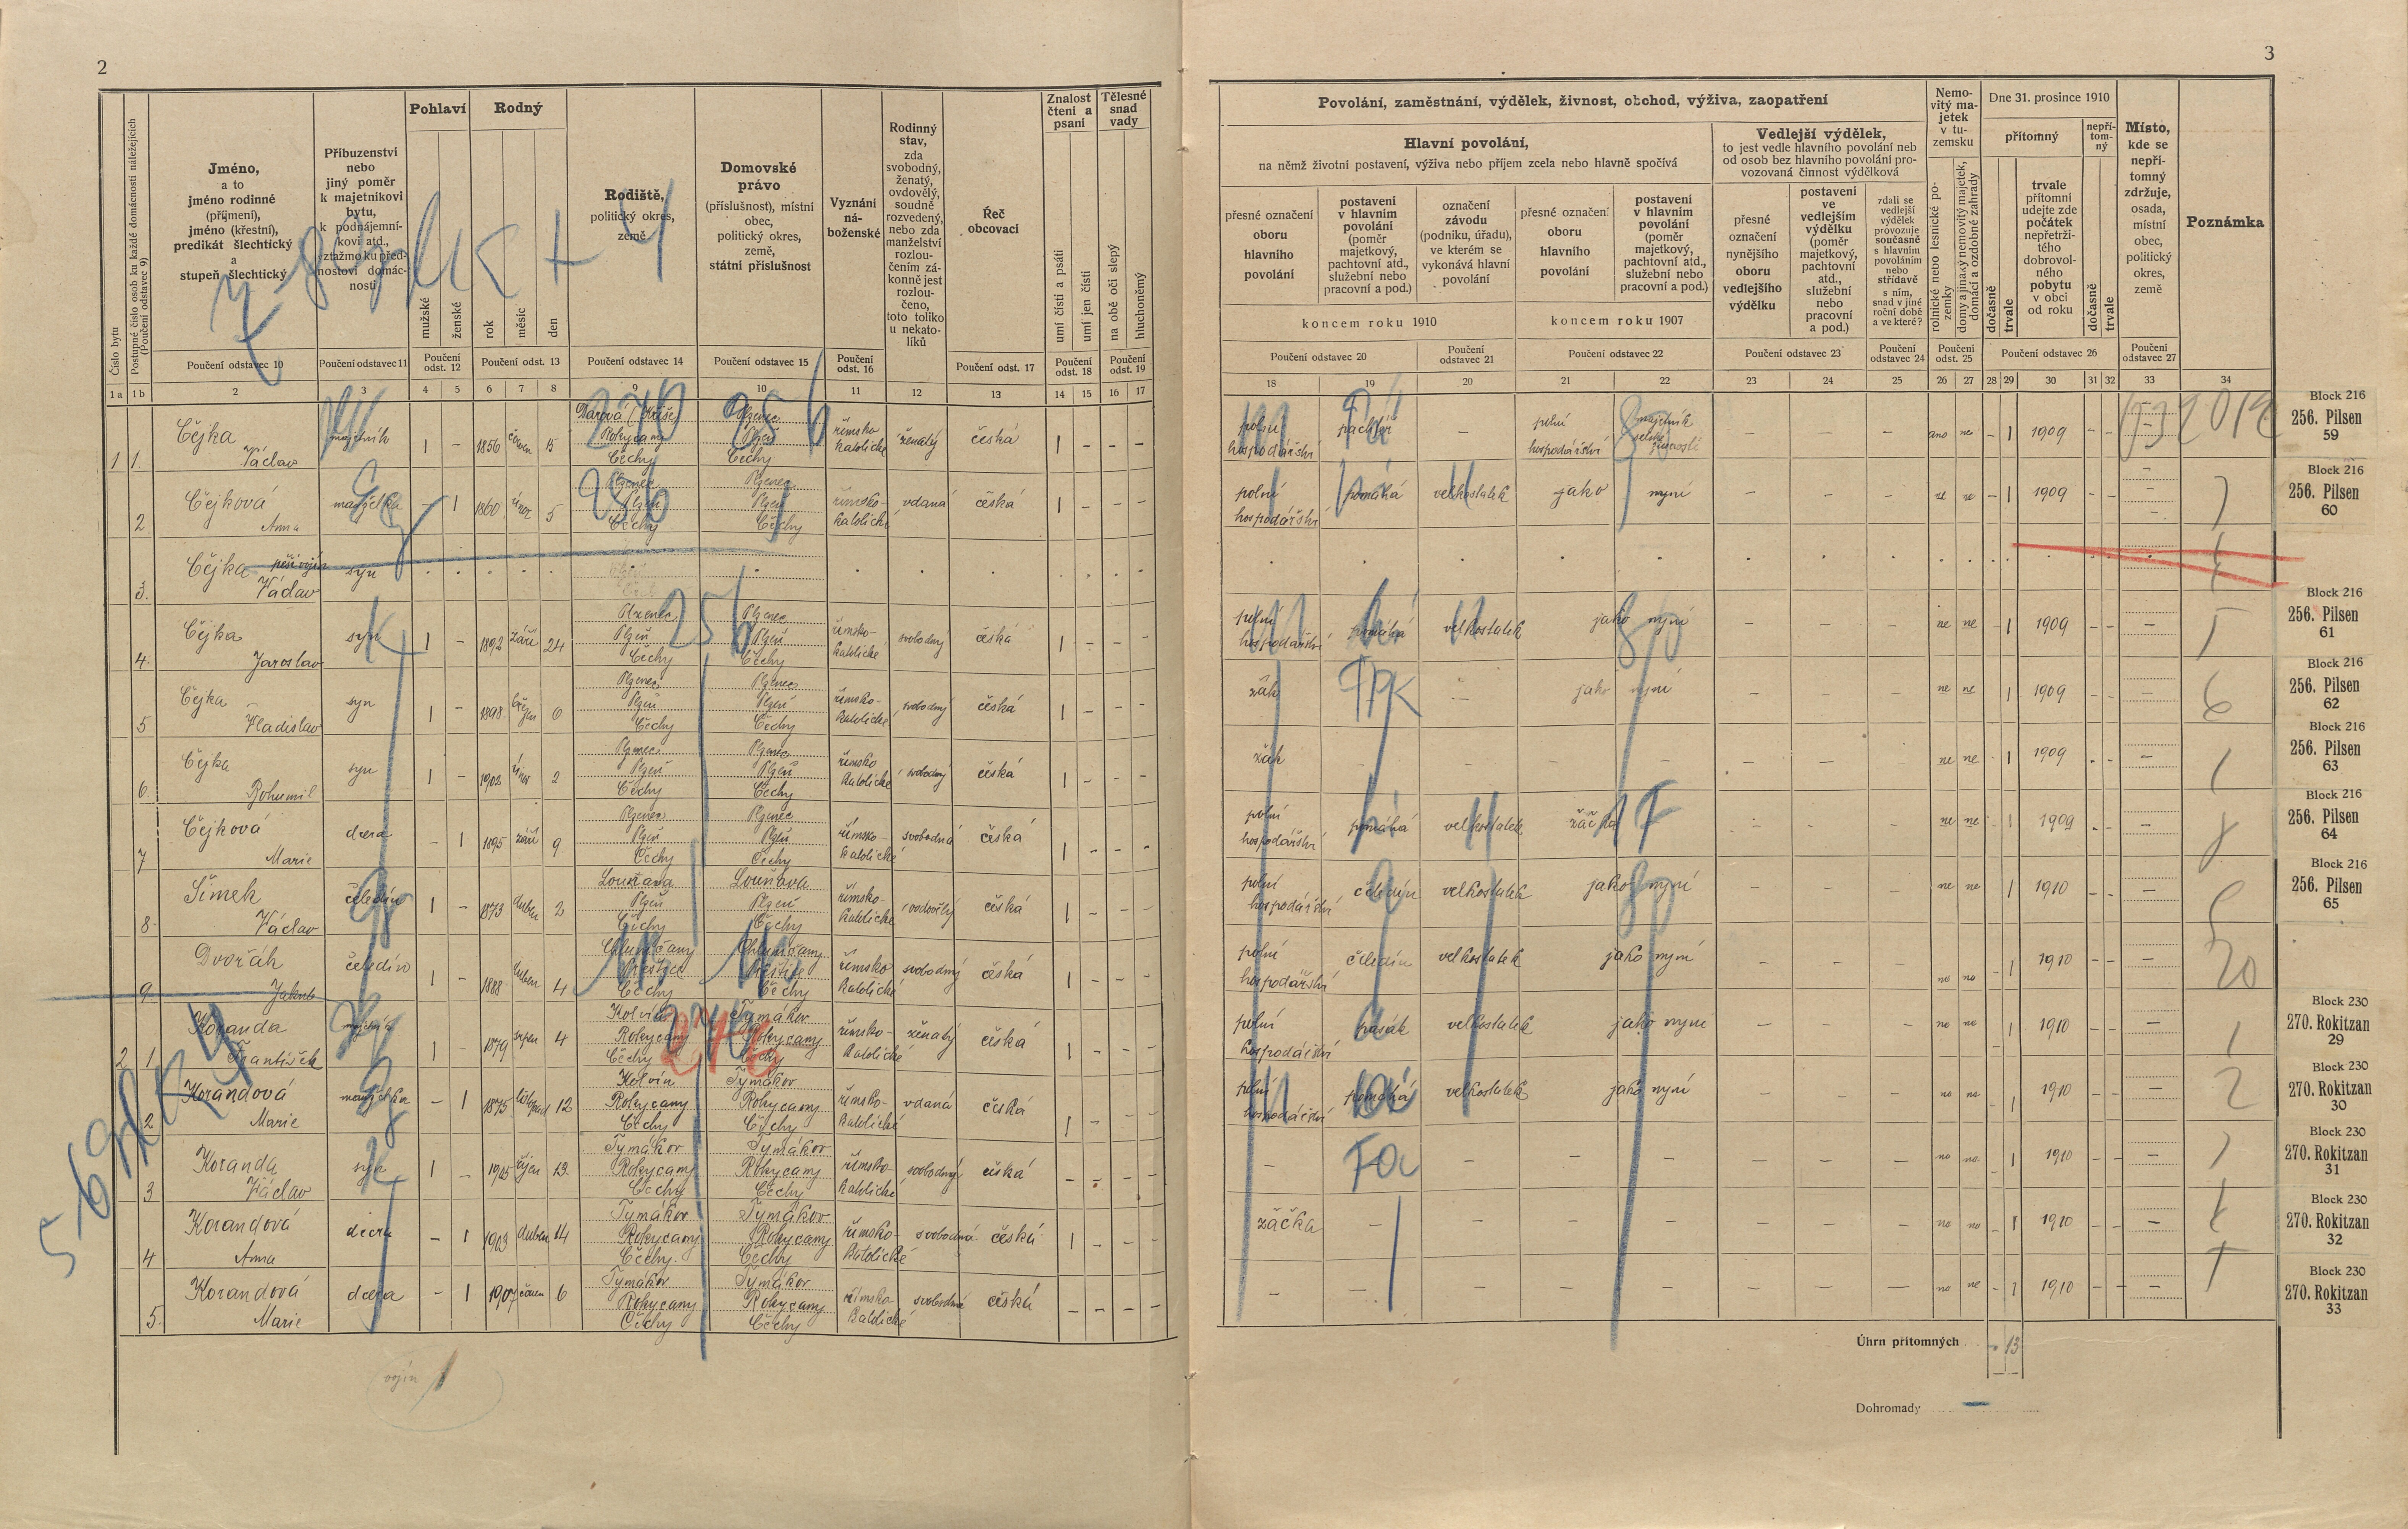 2
Číslo bytu
Postupné číslo osob ku každé domácnosti náležejících
(Poučení odstavec 9)
Jméno,
a to
jméno rodinné
(příjmení),
jméno (křestní),
predikát šlechtický
a
stupeň šlechtický
Příbuzenství
nebo
jiný poměr
k majetníkovi
bytu,
k podnájemní-
kovi atd.,
vztažmo ku před-
nostovi domác-
nosti
Pohlaví
mužské
ženské
Rodný
rok
měsíc
den
Rodiště,
politický okres,
země
Domovské
právo
(příslušnost), místní
obec,
politický okres,
země,
státní příslušnost
Vyznání
ná-
boženské
Rodinný
stav,
zda
svobodný,
ženatý,
ovdovělý,
soudně
rozvedený,
nebo zda
manželství
rozlou-
čením zá-
konně jest
rozlou-
čeno,
toto toliko
u nekato-
líků
Řeč
obcovací
Znalost
čtení a
psaní
umí čísti a psáti
umí jen čísti
Tělesné
snad
vady
na obě oči slepý
hluchoněmý
Poučení odstavec 10
Poučení odstavec 11
Poučení
odst. 12
Poučení odst. 13
Poučení odstavec 14
Poučení odstavec 15
Poučení
odst. 16
Poučení odst. 17
Poučení
odst. 18
Poučení
odst. 19
1a 1b 2 3 4 5 6 7 8 9 10 11 12 13 14 15 16 17
1 1. Čejka Václav 1 – 1856 15 Rokycany Čechy Plzenec Plzeň Čechy římsko katolické ženatý česká 1 – –
2 Čejková Anna manželka – 1 1860 únor 5 Plzenec Plzeň Čechy Plzenec Plzeň Čechy římsko-katolické vdaná česká 1 – – –
3. Čejka Václav syn
4. Čejka Jaroslav syn 1 – 1892 září 24 Plzenec Plzeň Čechy Plzenec Plzeň Čechy římsko-katolické svobodný česká 1 – – –
5 Čejka Vladislav syn 1 – 1898 6 Plzenec Plzeň Čechy Plzenec Plzeň Čechy římsko-katolické svobodný česká 1 – – –
6. Čejka Bohumil syn 1 – 1902 únor 2 Plzenec Plzeň Čechy Plzenec Plzeň Čechy římsko katolické svobodný česká 1 – – –
7 Čejková Marie dcera – 1 1895 září 9 Plzenec Plzeň Čechy Plzenec Plzeň Čechy římsko-katolické svobodná česká 1 – – –
8. Šimek Václav čeledín 1 – 1873 duben 2 Plzeň Čechy Plzeň Čechy římsko-katolické česká 1 – – –
9 Dvořák Jakub čeledín 1 – 1888 duben 4 Čechy Čechy římsko katolické svobodný česká 1 – – –
2 1 Koranda František 1 – 1879 srpen 4 Rokycany Čechy Tymákov Rokycany římsko-katolické ženatý česká 1 – – –
2 Korandová Marie manželka – 1 1875 12 Rokycany Čechy Tymákov Rokycany Čechy římsko-katolické vdaná česká 1 – – –
3 Koranda Václav syn 1 – 1905 říjen Tymákov Rokycany Čechy Tymákov Rokycany Čechy římsko-katolické svobodný česká – – – –
4 Korandová Anna dcera – 1 1903 duben 14 Tymákov Rokycany Čechy Tymákov Rokycany Čechy římsko-katolické svobodná česká 1 – – –
5. Korandová Marie dcera – 1 1907 6 Tymákov Rokycany Čechy Tymákov Rokycany Čechy římsko katolické svobodná česká – – – –
vojín 1
3
Povolání, zaměstnání, výdělek, živnost, obchod, výživa, zaopatření
Hlavní povolání,
na němž životní postavení, výživa nebo příjem zcela nebo hlavně spočívá
přesné označení
oboru
hlavního
povolání
postavení
v hlavním
povolání
(poměr
majetkový,
pachtovní atd.,
služební nebo
pracovní a pod.)
označení
závodu
(podniku, úřadu),
ve kterém se
vykonává hlavní
povolání
přesné označení
oboru
hlavního
povolání
postavení
v hlavním
povolání
(poměr
majetkový,
pachtovní atd.,
služební nebo
pracovní a pod.)
koncem roku 1910
koncem roku 1907
Vedlejší výdělek,
to jest vedle hlavního povolání neb
od osob bez hlavního povolání pro-
vozovaná činnost výdělková
přesné
označení
nynějšího
oboru
vedlejšího
výdělku
postavení
ve
vedlejším
výdělku
(poměr
majetkový,
pachtovní
atd.,
služební
nebo
pracovní
a pod.)
zdali se
vedlejší
výdělek
provozuje
současně
s hlavním
povoláním
nebo
střídavě
s ním,
snad v jiné
roční době
a ve které?
Nemo-
vitý ma-
jetek
v tu-
zemsku
rolnické nebo lesnické po-
zemky
domy a jinaký nemovitý majetek,
domácí a ozdobné zahrady
Dne 31. prosince 1910
přítomný
dočasně
trvale
trvale
přítomní
udejte zde
počátek
nepřetrži-
tého
dobrovol-
ného
pobytu
v obci
od roku
nepří-
tom-
ný
dočasně
trvale
Místo,
kde se
nepří-
tomný
zdržuje,
osada,
místní
obec,
politický
okres,
země
Poznámka
Poučení odstavec 20
Poučení
odstavec 21
Poučení odstavec 22
Poučení odstavec 23
Poučení
odstavec 24
Poučení
odst. 25
Poučení odstavec 26
Poučení
odstavec 27
18 19 20 21 22 23 24 25 26 27 28 29 30 31 32 33 34
polní hospodářství pachtýř – polní hospodářství majetník – – – ano ne – 1 1909 – – –
polní hospodářství pomáhá velkostatek jako nyní – – – ne ne – 1 1909 – –
polní hospodářství pomáhá velkostatek jako nyní – – – ne ne 1 1909 – –
žák – jako nyní – – – ne ne 1 1909 – –
žák – – – – – – – ne ne 1 1909 –
polní hospodářství pomáhá velkostatek žačka – – – ne ne 1 1909 –
polní hospodářství čeledín velkostatek jako nyní – – – ne ne 1 1910 –
polní hospodářství čeledín velkostatek jako nyní – – – no no 1 1910 –
polní hospodářství pasák velkostatek jako nyní – – – no no 1 1910 –
polní hospodářství pomáhá velkostatek jako nyní – – – no no 1 1910 –
– – – – – – – no no 1 1910 –
žáčka – – – – – – – no no 1 1910 –
– – – – – – – no ne 1 1910 –
Úhrn přítomných 13
Dohromady –
Block 216
256. Pilsen
59
Block 216
256. Pilsen
60
Block 216
256. Pilsen
61
Block 216
256. Pilsen
62
Block 216
256. Pilsen
63
Block 216
256. Pilsen
64
Block 216
256. Pilsen
65
Block 230
270. Rokitzan
29
Block 230
270. Rokitzan
30
Block 230
270. Rokitzan
31
Block 230
270. Rokitzan
32
Block 230
270. Rokitzan
33